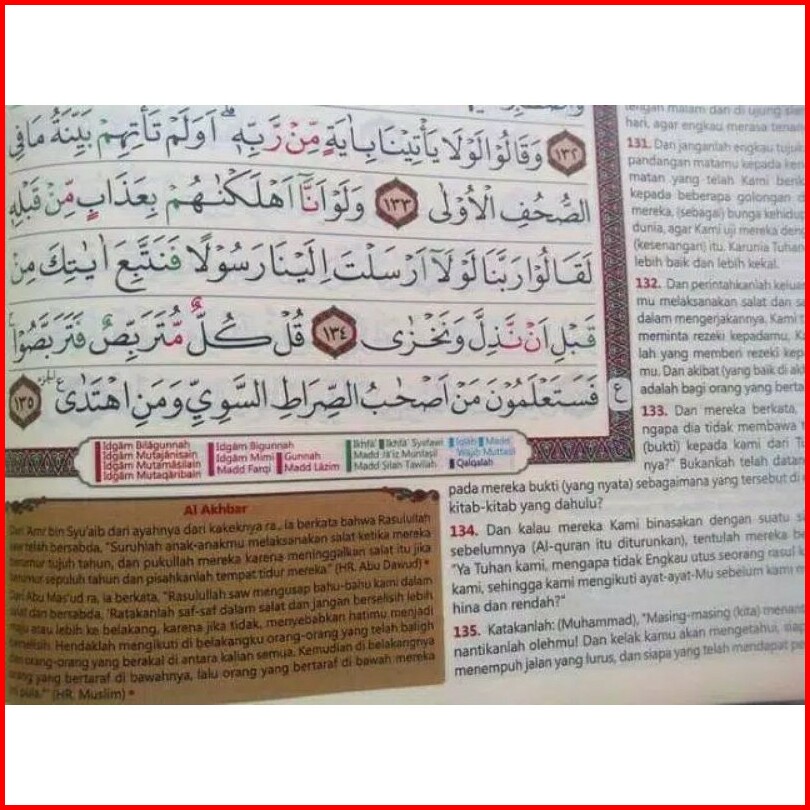 ١٣٢ وَقَالُوا لَوْلَا يَأْتِينَا بِآيَةٍ مِّنْ رَّبِّهِ ۗ أَوَلَمْ تَأْتِهِمْ بَيِّنَةُ مَا فِي
الصُّحُفِ الْأُولَى ١٣٣ وَلَوْ أَنَّا أَهْلَكْنٰهُمْ بِعَذَابٍ مِّنْ قَبْلِهِ
لَقَالُوا رَبَّنَا لَوْلَا أَرْسَلْتَ إِلَيْنَا رَسُولًا فَنَتَّبِعَ اٰيٰتِكَ مِنْ
قَبْلِ أَنْ نَّذِلَّ وَنَخْزٰى ١٣٤ قُلْ كُلٌّ مُّتَرَبِّصٌ فَتَرَبَّصُوا ۚ
فَسَتَعْلَمُونَ مَنْ أَصْحٰبُ الصِّرَاطِ السَّوِيِّ وَمَنِ اهْتَدٰى ع ١٣٥
ع
Idgām Bilāgunnah
Idgām Mutajānisain
Idgām Mutamāsilain
Idgām Mutaqāribain
Idgām Bigunnah
Idgām Mimi
Gunnah
Madd Farqi
Madd Lāzim
Ikhfā'
Ikhfā' Syafawi
Madd Jā'iz Munfaṣil
Madd Silah Tawilah
Iqlab
Madd Wajib Muttaṣil
Qalqalah
Al Akhbar
Dari 'Amr bin Syu'aib dari ayahnya dari kakeknya ra., ia berkata bahwa Rasulullah
saw telah bersabda, "Suruhlah anak-anakmu melaksanakan salat ketika mereka
berumur tujuh tahun, dan pukullah mereka karena meninggalkan salat itu jika
berumur sepuluh tahun dan pisahkanlah tempat tidur mereka" (HR. Abu Dawud)
Dari Abu Mas'ud ra, ia berkata, "Rasulullah saw mengusap bahu-bahu kami dalam
salat dan bersabda, 'Ratakanlah saf-saf dalam salat dan jangan berselisih lebih
maju atau lebih ke belakang, karena jika tidak, menyebabkan hatimu menjadi
berselisih. Hendaklah mengikuti di belakangku orang-orang yang telah baligh
dan orang-orang yang berakal di antara kalian semua. Kemudian di belakangnya
orang yang bertaraf di bawahnya, lalu orang yang bertaraf di bawah mereka
ini pula.'" (HR. Muslim)
tengah malam dan di ujung
hari, agar engkau merasa tenang
131. Dan janganlah engkau tujukan
pandangan matamu kepada
matan yang telah Kami
kepada beberapa golongan
mereka, (sebagai) bunga
dunia, agar Kami uji mereka
(kesenangan) itu. Karunia
lebih baik dan lebih kekal.
132. Dan perintahkanlah
mu melaksanakan salat dan
dalam mengerjakannya. Kami
meminta rezeki kepadamu,
lah yang memberi rezeki
mu. Dan akibat (yang baik di
adalah bagi orang yang
133. Dan mereka berkata,
ngapa dia tidak membawa
(bukti) kepada kami dari
nya?" Bukankah telah
pada mereka bukti (yang nyata) sebagaimana yang tersebut di
kitab-kitab yang dahulu?
134. Dan kalau mereka Kami binasakan dengan suatu
sebelumnya (Al-quran itu diturunkan), tentulah mereka
"Ya Tuhan kami, mengapa tidak Engkau utus seorang rasul
kami, sehingga kami mengikuti ayat-ayat-Mu sebelum kami
hina dan rendah?"
135. Katakanlah: (Muhammad), "Masing-masing (kita)
nantikanlah olehmu! Dan kelak kamu akan mengetahui,
menempuh jalan yang lurus, dan siapa yang telah mendapat